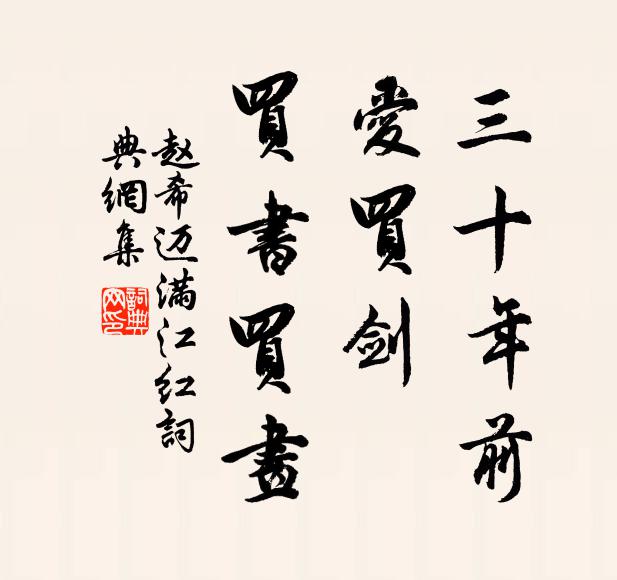 三十年前
愛買剑
買書買畫
赵希迈满江红詞
典網集
詞典网印